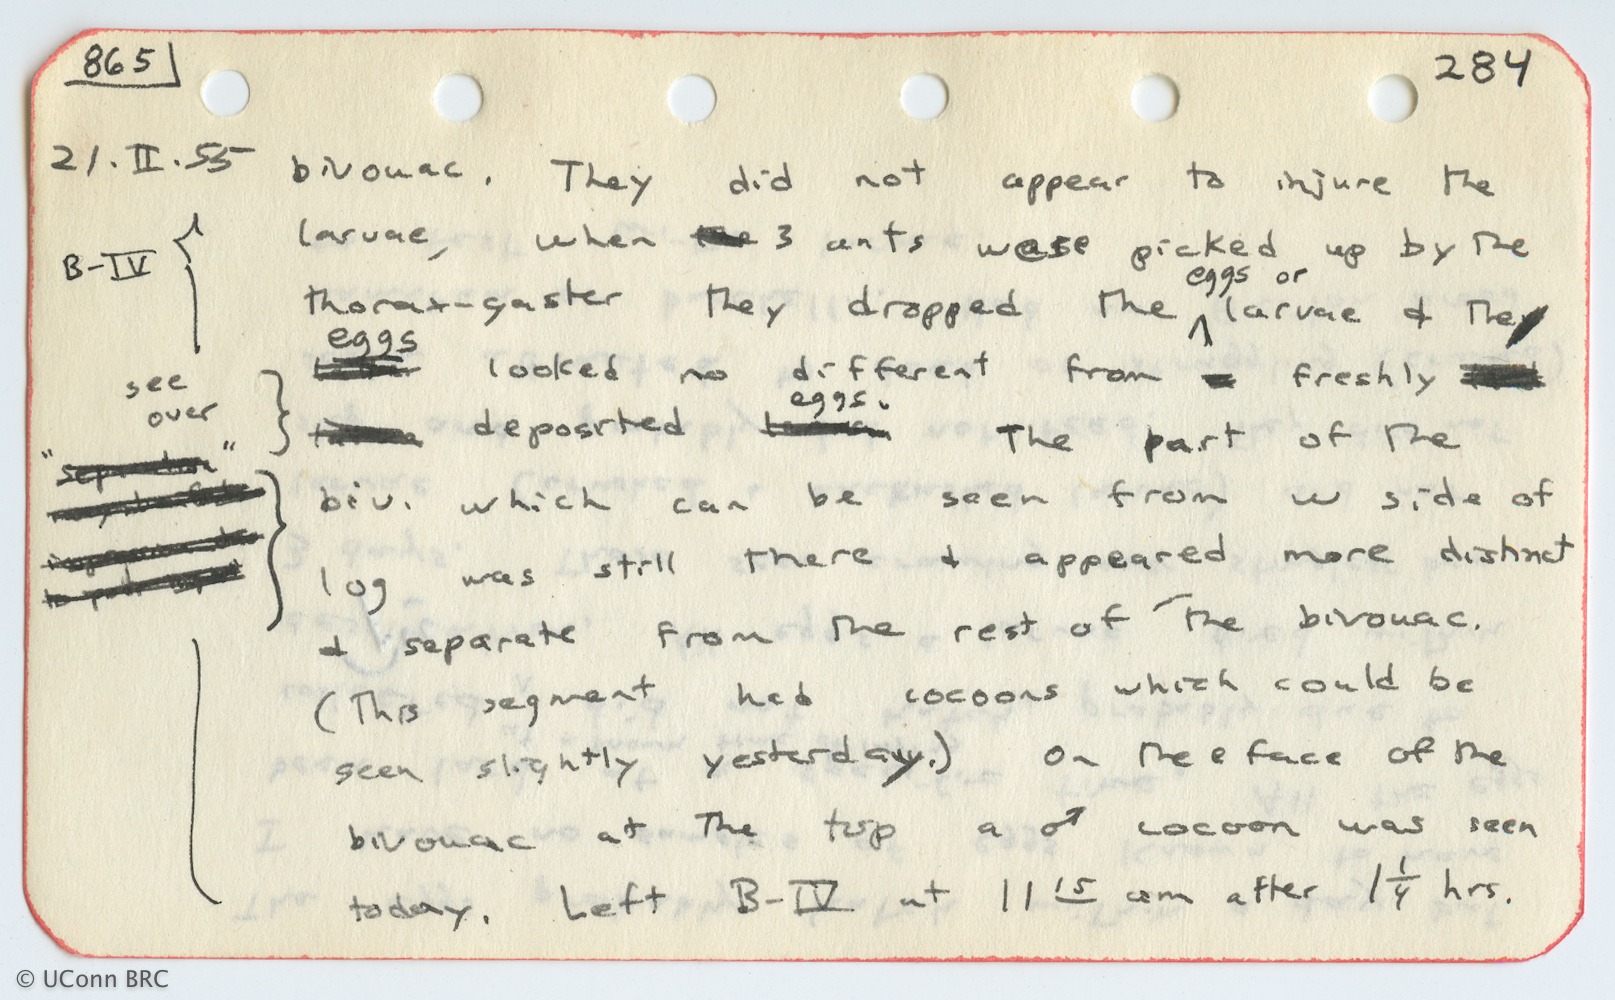 865
284
21.II.55
bivouac. They did not appear to injure the
B-IV
larvae, when 3 ants were picked up by the
eggs or
thorax-gaster they dropped the larvae & they
eggs
see
over
looked no different from freshly
eggs.
deposited The part of the
"separation"
biv. which can be seen from w side of
log was still there & appeared more distinct
& separate from the rest of the bivouac.
(This segment had cocoons which could be
seen slightly yesterday.) On the e face of the
bivouac at the top a ♂ cocoon was seen
today. Left B-IV at 11 15 am after 1 1/4 hrs.
© UConn BRC